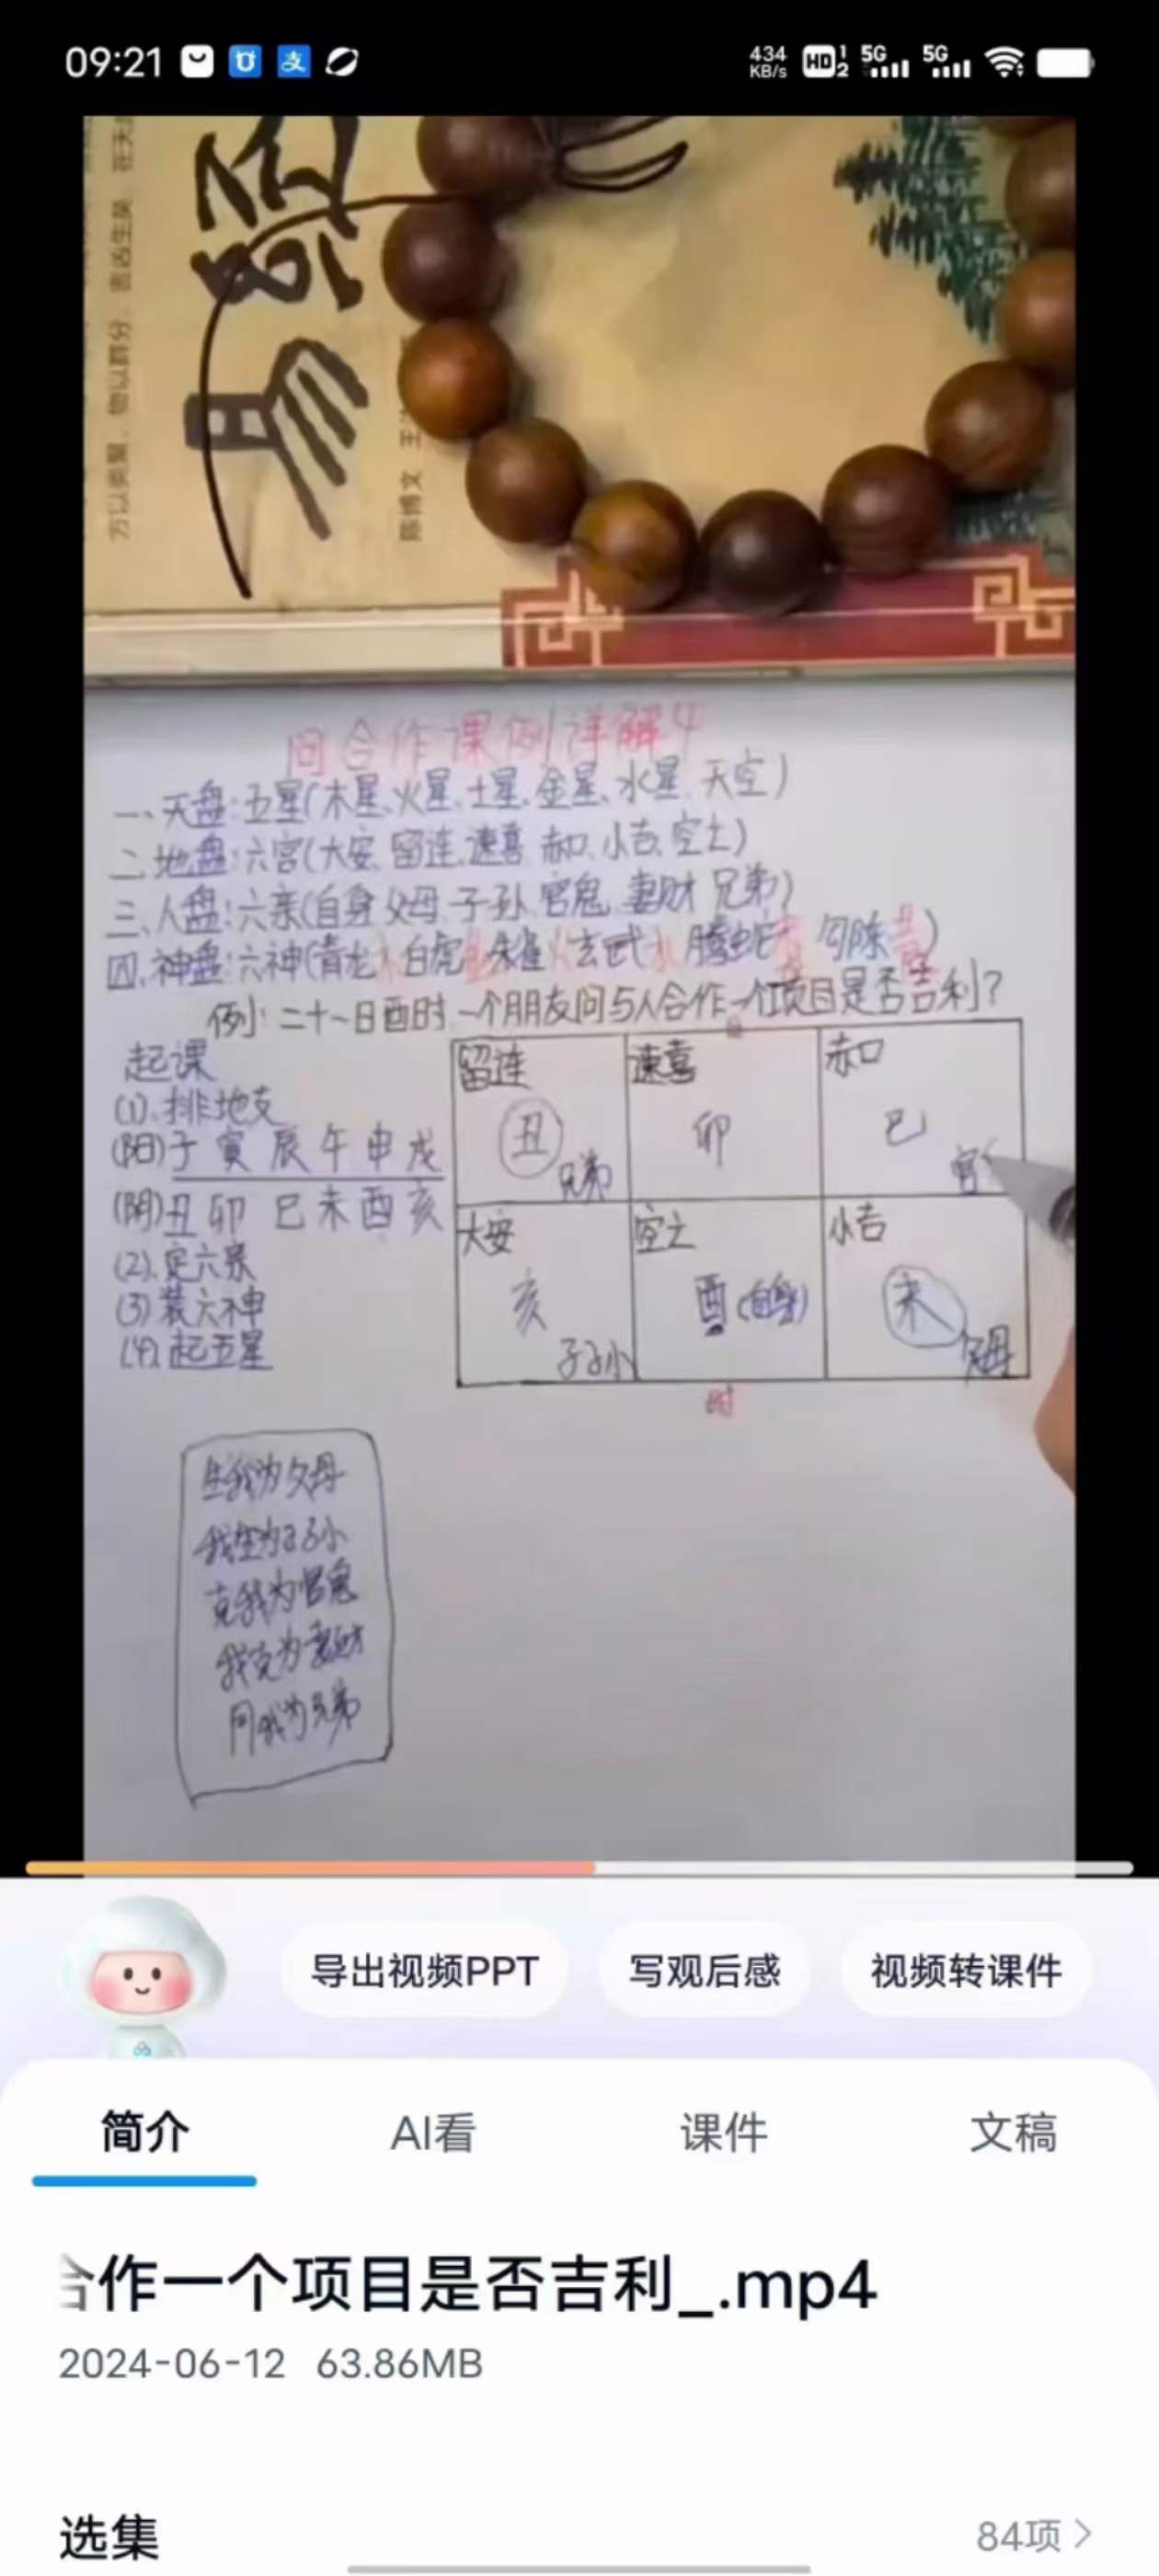 09:21
434 KB/s HD 1 2 5G 5G
支
易
方以类聚，物以群分，吉凶生矣，在天
陈博文 王
问合作课例详解4
一、天盘:五星(木星、火星、土星、金星、水星、天空)
二、地盘:六宫(大安、留连、速喜、赤口、小吉、空亡)
三、人盘:六亲(自身、父母、子孙、官鬼、妻财、兄弟)
四、神盘:六神(青龙木白虎金朱雀火玄武水腾蛇 勾陈)
例:二十一日酉时,一个朋友问与人合作一个项目是否吉利?
起课
(1)、排地支
(阳)子寅辰午申戌
(阴)丑卯巳未酉亥
(2)、定六亲
(3)装六神
(4)、起五星
留连 速喜 赤口
丑 卯 巳
兄弟 官
大安 空亡 小吉
亥 酉(自身) 未
子孙 父母
时
生我为父母
我生为子孙
克我为官鬼
我克为妻财
同我为兄弟
导出视频PPT 写观后感 视频转课件
简介 AI看 课件 文稿
合作一个项目是否吉利_.mp4
2024-06-12 63.86MB
选集 84项 >